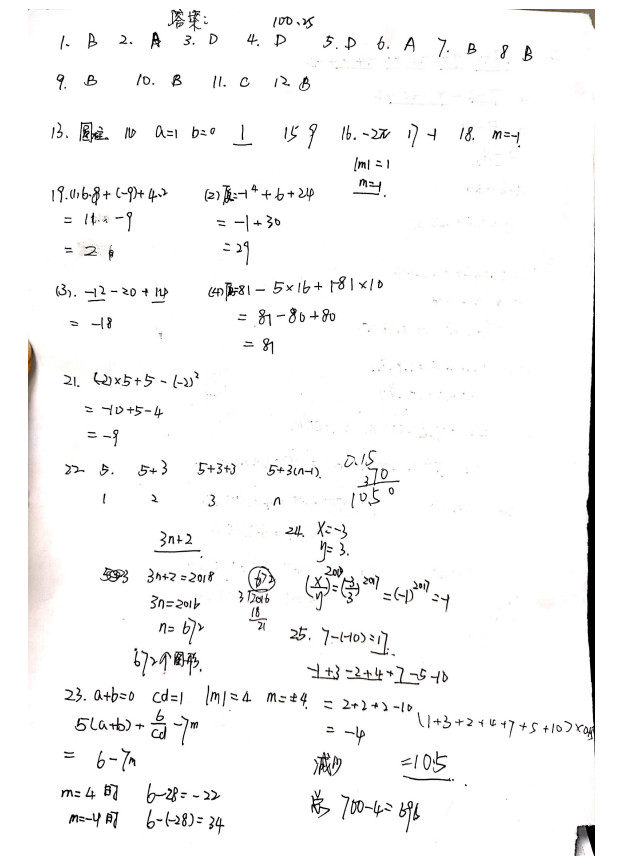 答案:
100.25
1. B 2. A 3. D 4. D 5. D 6. A 7. B 8 B
9. B 10. B 11. C 12 B
13. 圆柱 a=1 b=0 1 15 9 16. -2π 17 -1 18. m=-1
|m|=1
m=-1
19.(1) 6.8+(-9)+4.2
= -9
= 2
(2)原=-1⁴+6+24
= -1+30
= 29
(3). -12-20+14
= -18
(4)原=81-5×16+|-8|×10
= 81-80+80
= 81
21. (-2)×5+5-(-2)²
= -10+5-4
= -9
22 5. 5+3 5+3+3 5+3(n-1).
1 2 3 n
0.15
370
1050
3n+2
3n+2=2018
3n=2016
n=672
672个图形.
672
3 2016
18
21
24. x=-3
y=3.
(x/y)²⁰¹⁷=(-3/3)²⁰¹⁷=(-1)²⁰¹⁷=-1
25. 7-(-10)=17
-1+3-2+4+7-5-10
= 2+2+2-10
= -4
减少
总 700-4=696
(1+3+2+4+7+5+10)×
=10.5
23. a+b=0 cd=1 |m|=4 m=±4
5(a+b)+6/cd-7m
= 6-7m
m=4时 6-28=-22
m=-4时 6-(-28)=34